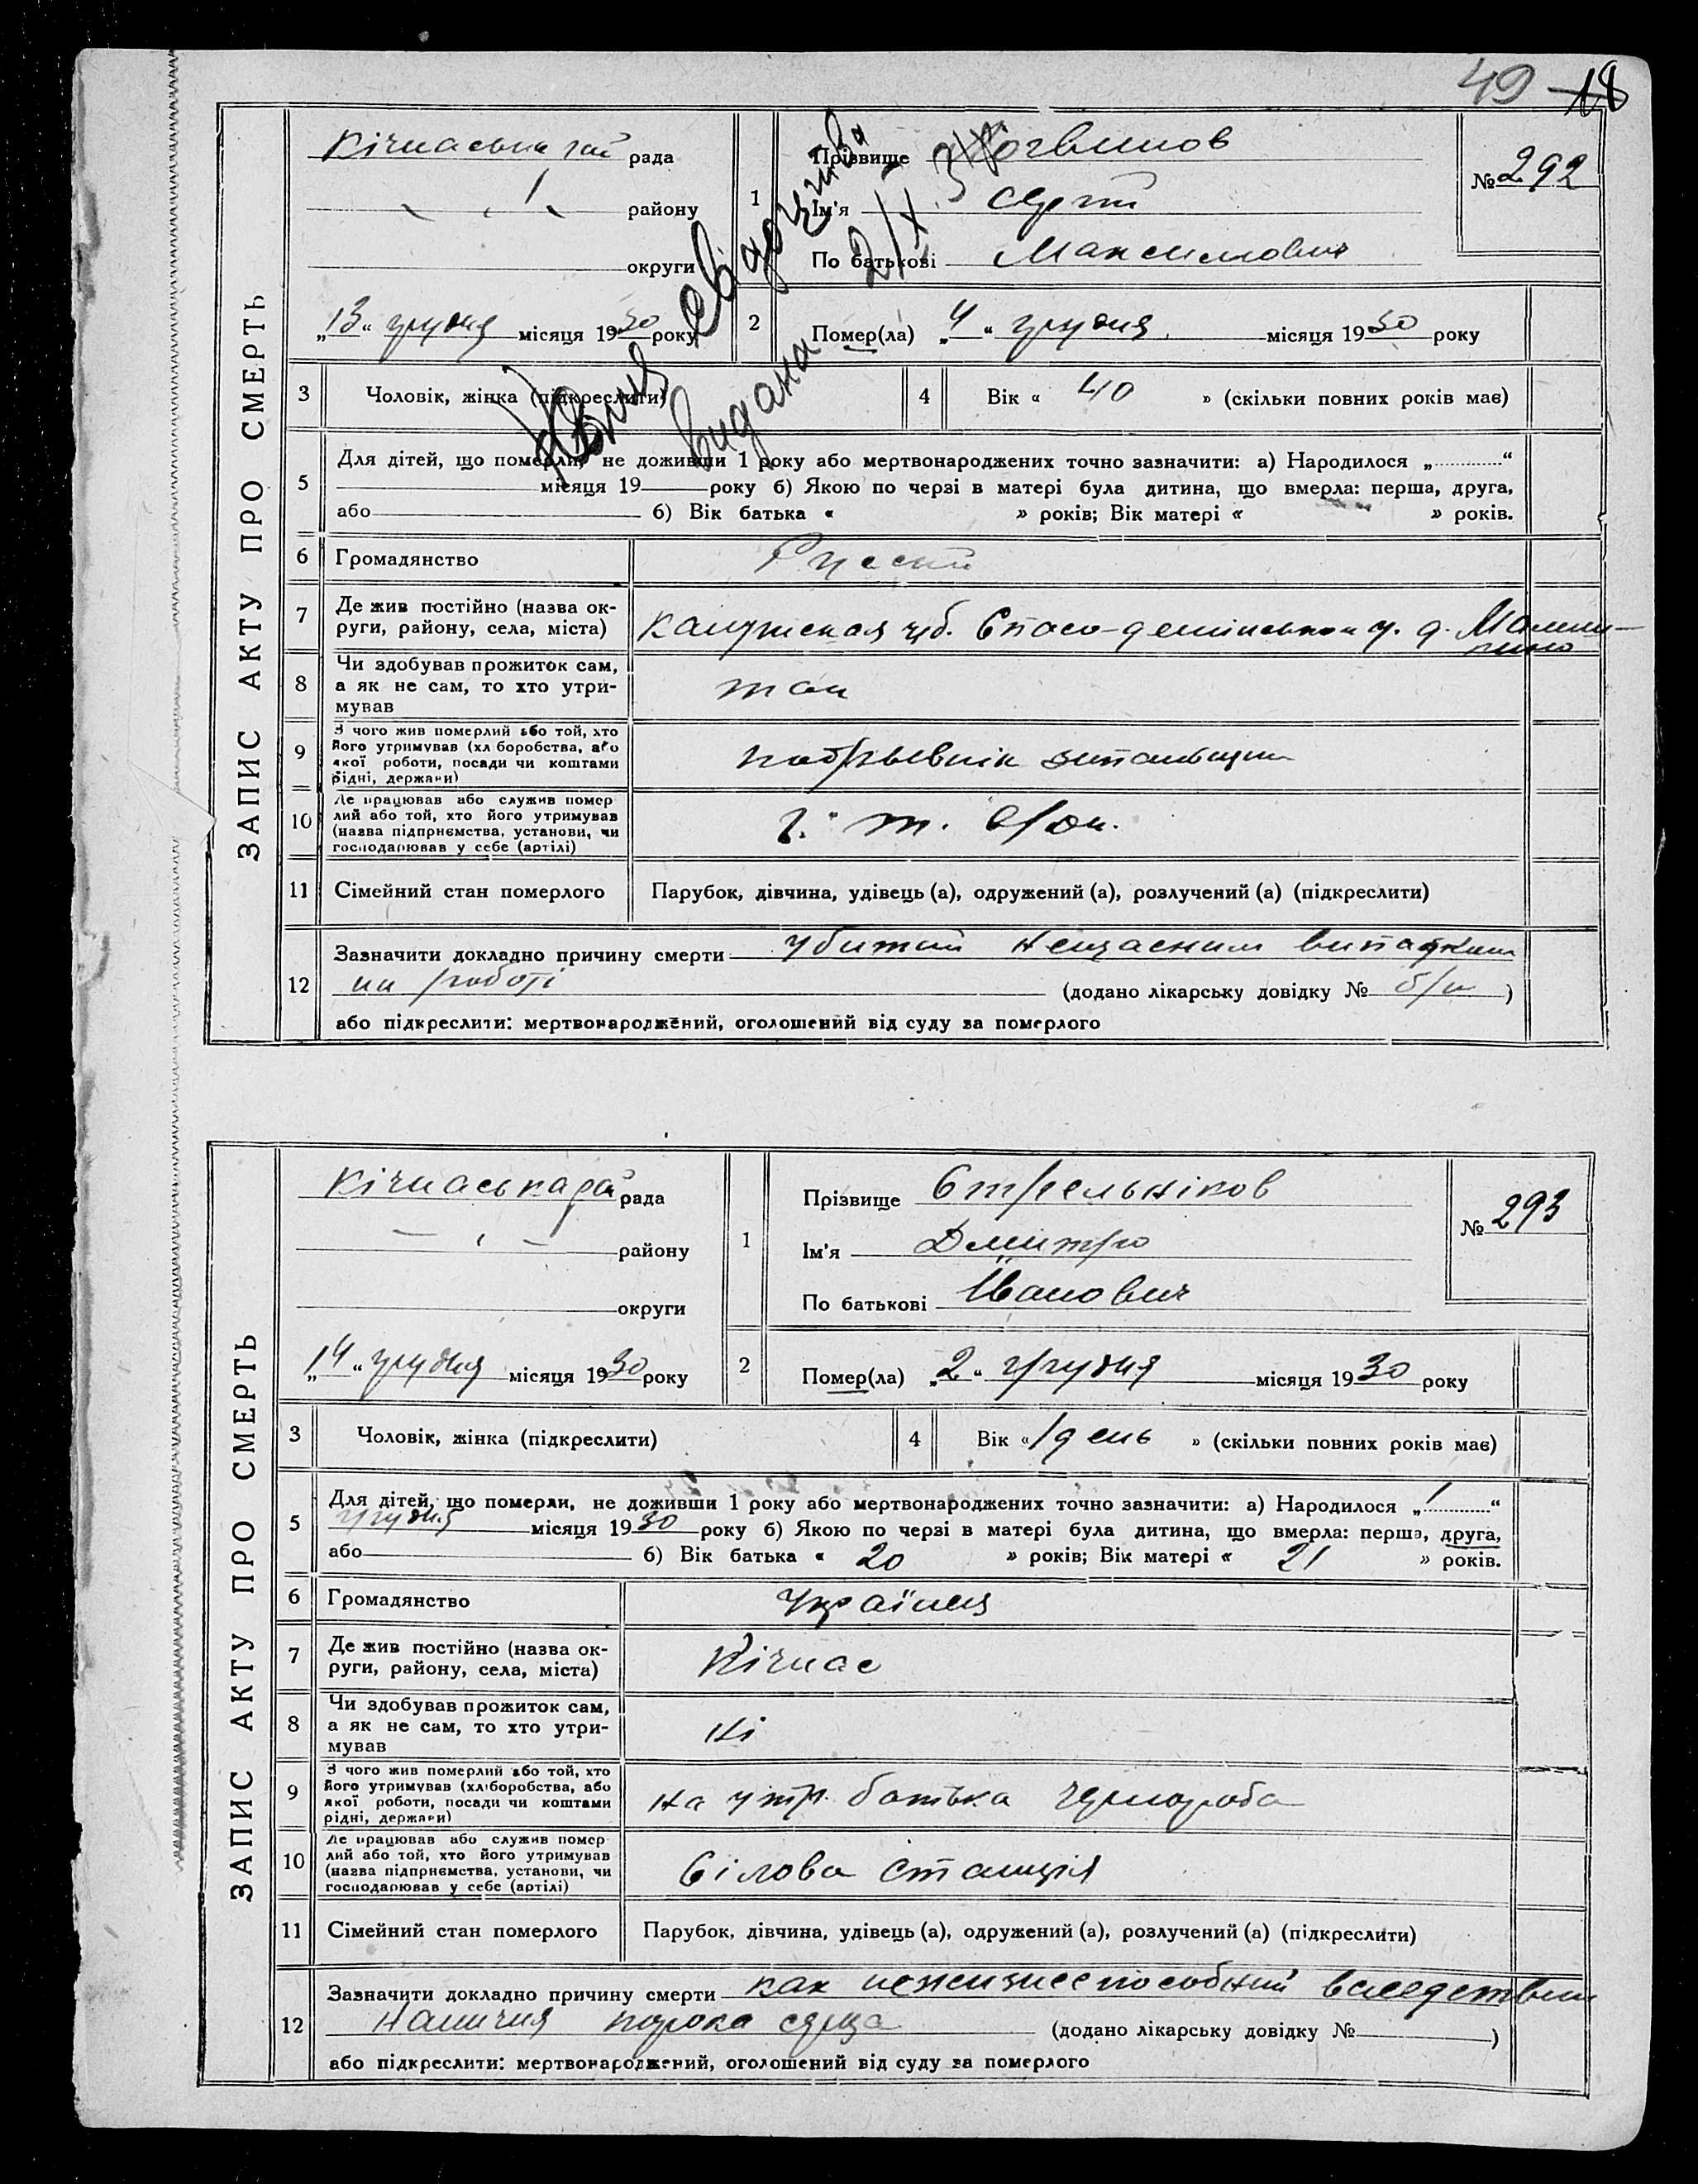 49 18
ЗАПИС АКТУ ПРО СМЕРТЬ
Кічкаська рада
району
округи
„13“ грудня місяця 1930 року
1
Прізвище Логвинов
Ім'я Сергій
По батькові Максимович
№ 292
2
Помер(ла) „4“ грудня місяця 1930 року
Копия свідоцтва
видана 2/X
3 Чоловік, жінка (підкреслити)
4 Вік « 40 » (скільки повних років має)
5 Для дітей, що померли, не доживши 1 року або мертвонароджених точно зазначити: а) Народилося „ “
місяця 19 року б) Якою по черзі в матері була дитина, що вмерла: перша, друга,
або б) Вік батька « » років; Вік матері « » років.
6 Громадянство Руский
7 Де жив постійно (назва ок-
руги, району, села, міста) Калужская губ. Спасо-деминський у. д.
8 Чи здобував прожиток сам,
а як не сам, то хто утри-
мував
так
9 З чого жив померлий або той, хто
його утримував (хліборобства, або
якої роботи, посади чи коштами
рідні, держави)
подрывнік запальщик
10 Де працював або служив помер
лий або той, хто його утримував
(назва підприємства, установи, чи
господарював у себе (артілі)
11 Сімейний стан померлого Парубок, дівчина, удівець (а), одружений (а), розлучений (а) (підкреслити)
12 Зазначити докладно причину смерти убитий нещасним випадком
на роботі (додано лікарську довідку № б/н )
або підкреслити: мертвонароджений, оголошений від суду за померлого
ЗАПИС АКТУ ПРО СМЕРТЬ
Кічкаська рада
району
округи
„14“ грудня місяця 1930 року
1
Прізвище Стрельніков
Ім'я Дмитро
По батькові Іванович
№ 293
2
Помер(ла) „2“ грудня місяця 1930 року
3 Чоловік, жінка (підкреслити)
4 Вік « 1 день » (скільки повних років має)
5 Для дітей, що померли, не доживши 1 року або мертвонароджених точно зазначити: а) Народилося „1“
грудня місяця 1930 року б) Якою по черзі в матері була дитина, що вмерла: перша, друга,
або б) Вік батька « 20 » років; Вік матері « 21 » років.
6 Громадянство Українец
7 Де жив постійно (назва ок-
руги, району, села, міста) Кічкас
8 Чи здобував прожиток сам,
а як не сам, то хто утри-
мував
ні
9 З чого жив померлий або той, хто
його утримував (хліборобства, або
якої роботи, посади чи коштами
рідні, держави)
на утр. батька чернороба
10 Де працював або служив помер
лий або той, хто його утримував
(назва підприємства, установи, чи
господарював у себе (артілі)
Сілова станція
11 Сімейний стан померлого Парубок, дівчина, удівець (а), одружений (а), розлучений (а) (підкреслити)
12 Зазначити докладно причину смерти как нежизнеспособний вследствии
наличия порока серца (додано лікарську довідку № )
або підкреслити: мертвонароджений, оголошений від суду за померлого